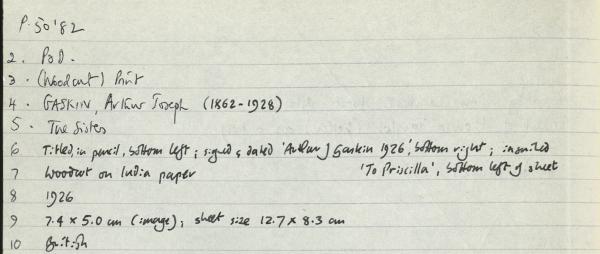 P.50'82
2. P & D.
3. (Woodcut) Print
4. GASKIN, Arthur Joseph (1862-1928)
5. The Sisters
6 Titled, in pencil, bottom left; signed & dated 'Arthur J Gaskin 1926', bottom right; inscribed
7 Woodcut on India paper 'To Priscilla', bottom left of sheet
8 1926
9 7.4 x 5.0 cm (image); sheet size 12.7 x 8.3 cm
10 British